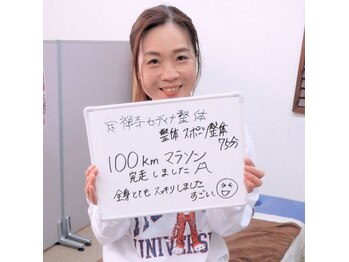 定禅寺セディナ整体
整体 スポーツ整体
75分
100kmマラソン
完走しました A
全身とてもスッキリしました
すごいし
UNIVERSI